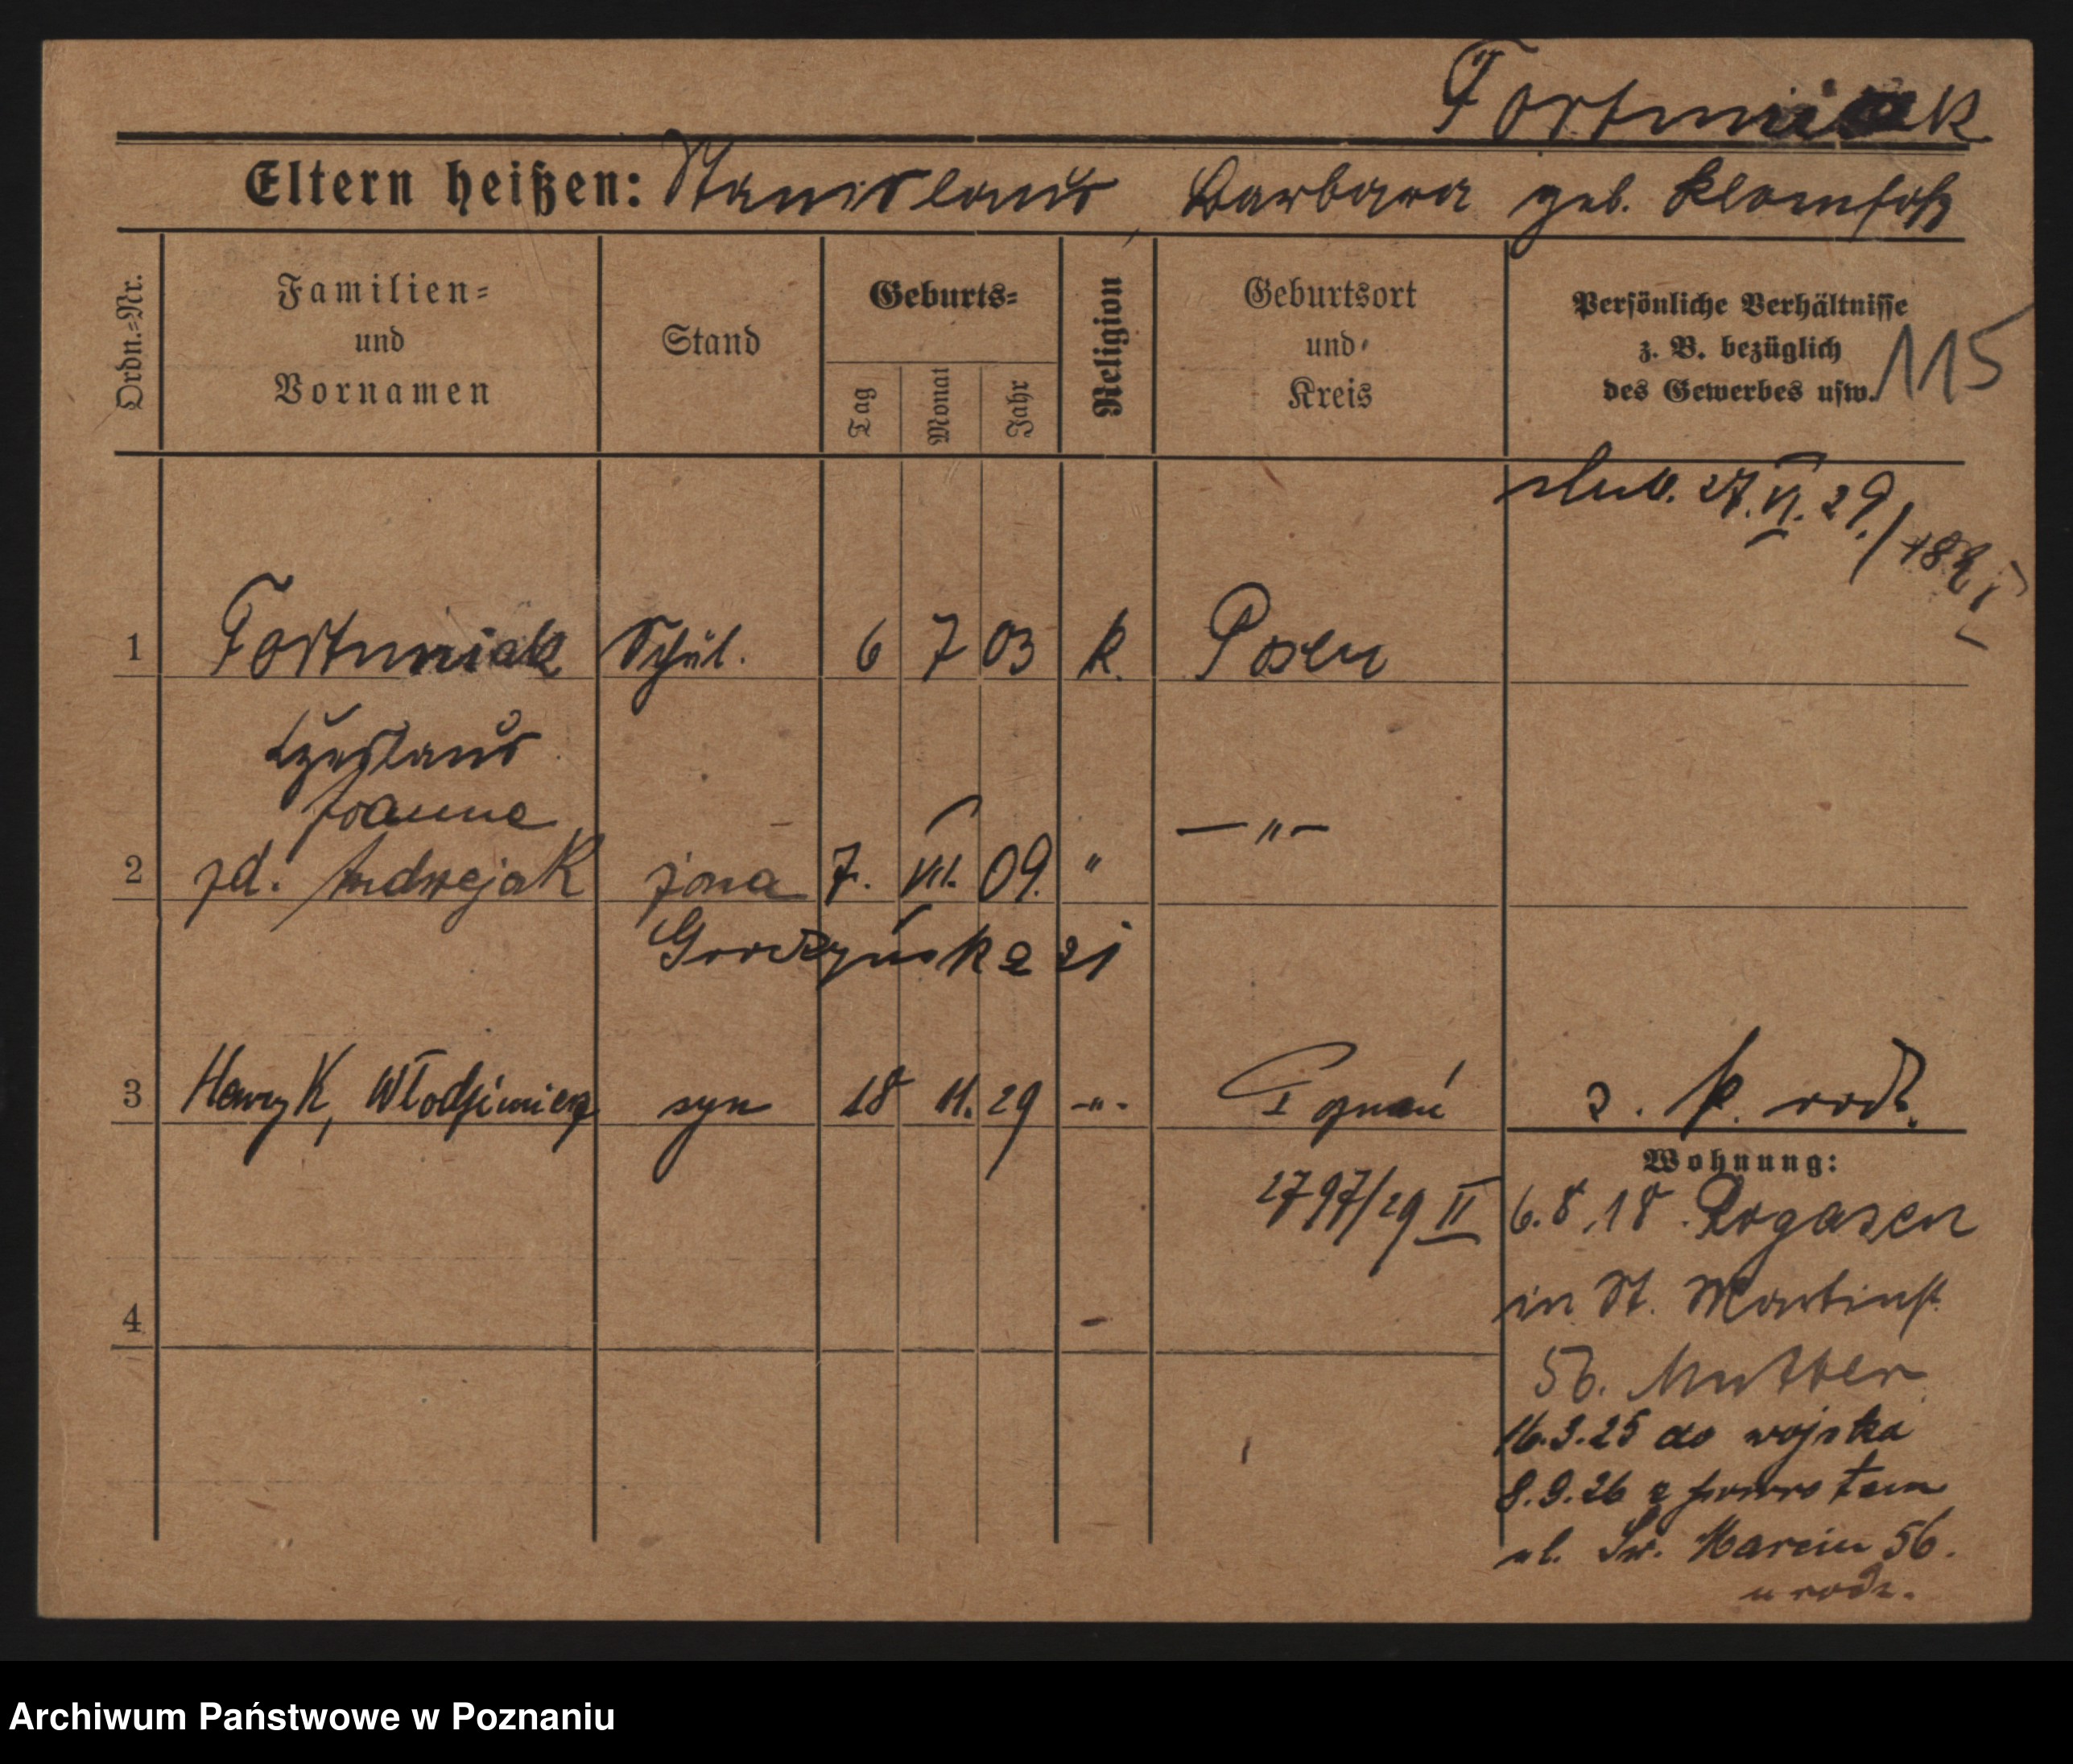 Fortuniak
Eltern heißen: Stanislaus Barbara geb.
Ordn.=Nr.
Familien= und Vornamen
Stand
Geburts=
Tag
Monat
Jahr
Religion
Geburtsort und Kreis
Persönliche Verhältnisse
z. B. bezüglich
des Gewerbes usw.
115
27.VI.29./
1 Fortuniak Schül. 6 7 03 k. Posen
Czeslaus
Joanna
2 zd. Andrzejak żona 7. VII. 09. " —"—
Gorczyńska 21
3 Henryk, Włodzimierz syn 18 11. 29 -"- Poznań
2797/29 II
Wohnung:
6.8.18. Rogasen
in St. Martinst.
56. Mutter
16.3.25 do wojska
8.9.26 z powrotem
ul. Św. Marcin 56.
u rodz.
4
Archiwum Państwowe w Poznaniu